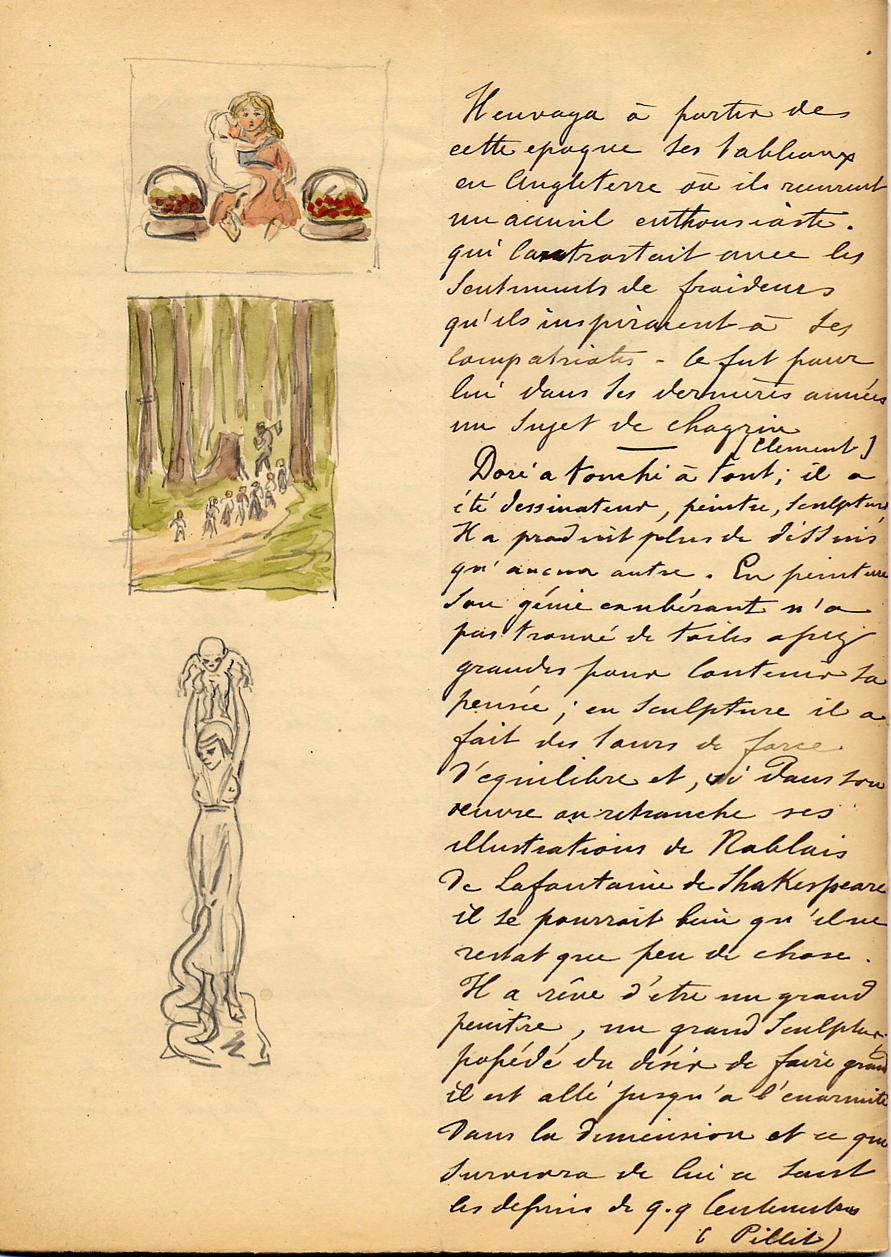 Il envoya à partir de
cette epoque ses tableaux
en Angleterre où ils recurent
un accueil enthousiaste.
qui contrastait avec les
sentiments de froideurs
qu'ils inspiraient à ses
compatriotes - ce fut pour
lui dans ses dernières années
un sujet de chagrin
(Clement)
Doré a touché à tout; il a
été dessinateur, peintre, sculpteur
Il a produit plus de dessins
qu'aucun autre. En peinture
son génie exubérant n'a
pas trouvé de toiles assez
grandes pour contenir sa
pensée; en sculpture il a
fait des tours de force
d'équilibre et, si dans son
œuvre on retranche ses
illustrations de Rablais
de Lafontaine de Shakespeare
il se pourrait bien qu'il ne
restat que peu de chose.
Il a rêvé d'etre un grand
peintre, un grand sculpteur.
possédé du désir de faire grand
il est allé jusqu'a l'enormité
dans la dimension et ce qui
survivra de lui ce sont
les dessins de q.q centimetres
(Pillet)